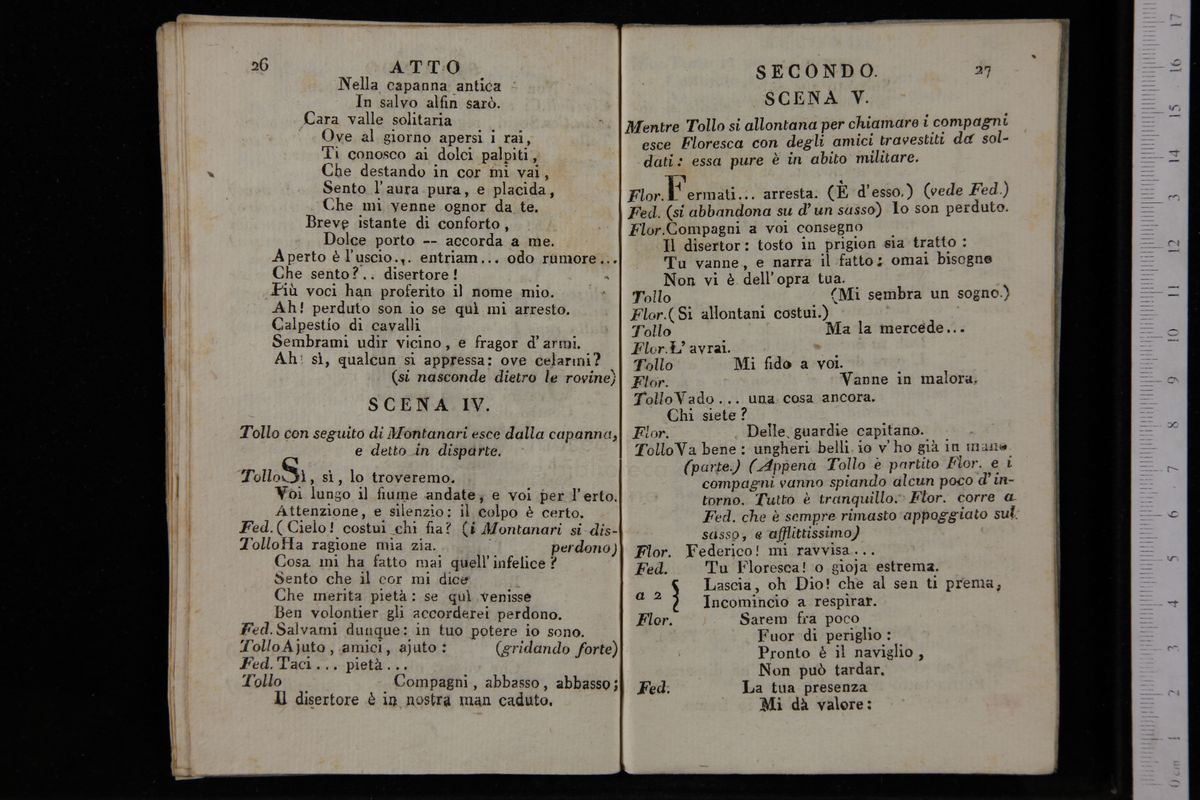 26 ATTO
Nella capanna antica
In salvo alfin sarò.
Cara valle solitaria
Ove al giorno apersi i rai,
Ti conosco ai dolci palpiti,
Che destando in cor mi vai,
Sento l'aura pura, e placida,
Che mi venne ognor da te.
Breve istante di conforto,
Dolce porto — accorda a me.
Aperto è l'uscio... entriam... odo rumore...
Che sento?... disertore!
Più voci han proferito il nome mio.
Ah! perduto son io se quì mi arresto.
Calpestio di cavalli
Sembrami udir vicino, e fragor d'armi.
Ah! sì, qualcun si appressa: ove celarmi?
(si nasconde dietro le rovine)
SCENA IV.
Tollo con seguito di Montanari esce dalla capanna,
e detto in disparte.
Tollo Sì, sì, lo troveremo.
Voi lungo il fiume andate, e voi per l'erto.
Attenzione, e silenzio: il colpo è certo.
Fed. (Cielo! costui chi fia? (i Montanari si dis-
Tollo Ha ragione mia zia. perdono)
Cosa mi ha fatto mai quell'infelice?
Sento che il cor mi dice
Che merita pietà: se quì venisse
Ben volontier gli accorderei perdono.
Fed. Salvami dunque: in tuo potere io sono.
Tollo Ajuto, amici, ajuto: (gridando forte)
Fed. Taci... pietà...
Tollo Compagni, abbasso, abbasso;
Il disertore è in nostra man caduto.
SECONDO. 27
SCENA V.
Mentre Tollo si allontana per chiamare i compagni
esce Floresca con degli amici travestiti da sol-
dati: essa pure è in abito militare.
Flor. Fermati... arresta. (È d'esso.) (vede Fed.)
Fed. (si abbandona su d'un sasso) Io son perduto.
Flor. Compagni a voi consegno
Il disertor: tosto in prigion sia tratto:
Tu vanne, e narra il fatto: omai bisogno
Non vi è dell'opra tua.
Tollo (Mi sembra un sogno.)
Flor. (Si allontani costui.)
Tollo Ma la mercede...
Flor. L'avrai.
Tollo Mi fido a voi.
Flor. Vanne in malora.
Tollo Vado... una cosa ancora.
Chi siete?
Flor. Delle guardie capitano.
Tollo Va bene: ungheri belli io v'ho già in mano
(parte.) (Appena Tollo è partito Flor. e i
compagni vanno spiando alcun poco d'in-
torno. Tutto è tranquillo. Flor. corre a
Fed. che è sempre rimasto appoggiato sul
sasso, e afflittissimo)
Flor. Federico! mi ravvisa...
Fed. Tu Floresca! o gioja estrema.
a 2 { Lascia, oh Dio! che al sen ti prema,
Incomincio a respirar.
Flor. Sarem fra poco
Fuor di periglio:
Pronto è il naviglio,
Non può tardar.
Fed. La tua presenza
Mi dà valore:
0 cm 1 2 3 4 5 6 7 8 9 10 11 12 13 14 15 16 17